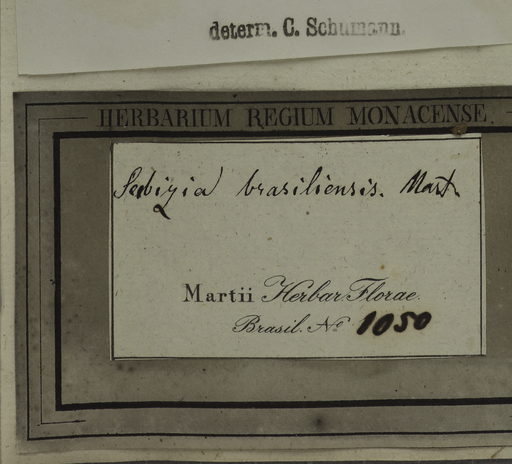 determ. C. Schumann.
HERBARIUM REGIUM MONACENSE.
Sabizia brasiliensis. Mart.
Martii Herbar. Florae
Brasil. No 1050